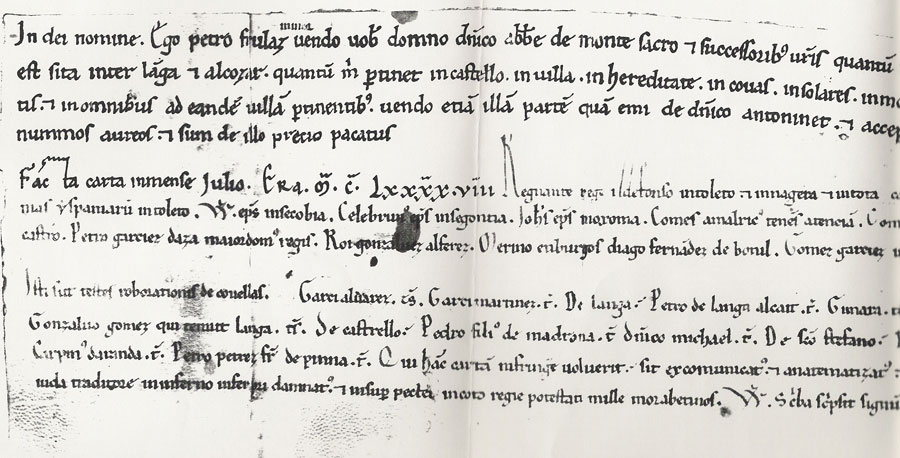 In dei nomine. Ego petro frulaz minor uendo uob̄ domno dn̄ico abb̄e de monte sacro ⁊ successorib⁹ ur̄is quantū
est sita inter lāga ⁊ alcozar. quantū m̄ ꝑtinet in castello. in uilla. in hereditate. in couas. in solares. in mo
tis. ⁊ in omnibus ad eandē uillā ꝑtinentib⁹. uendo etiā illā partē quā emi de dn̄ico antoninet. ⁊ accep
nummos aureos. ⁊ sum de illo precio pacatus
Facta carta in mense Julio. Era. m̄. c̄. Lxxxx.viii Regnante rege ildefonso in toleto ⁊ in nagera ⁊ in tota
mas yspaniarū in toleto. eps in secobia. Celebrun⁹ eps in segoncia. Joh̄s eps in oroma. Comes amalric⁹ tenēs atenciā. Com
castro. Petro garciez daza maiordom⁹ regis. Rot gonzaluez alferez. in burgos diago fernādez de boniel. Gomez garciez
Isti sūt testes roborationis de couellas. Garci aluarez. t̄s. Garci martinez. t̄. De langa. Petro de langa alcait. t̄.
Gonzaluo gomez qui tenuit langa. t̄. De castrello. Pedro fili⁹ de madrona. t̄ dn̄ico michael. t̄. De sc̄o stefano.
daranda. t̄. Petro petrez fr̄ de pinna. t̄. Qui hāc cartā infringe uoluerit. sit excomunicat⁹. ⁊ anatematizat⁹
iuda traditore in inferno inferiori damnat⁹. ⁊ insuꝑ pectet in coto regie potestati mille morabetinos. Sc̄ba sc̄psit signū